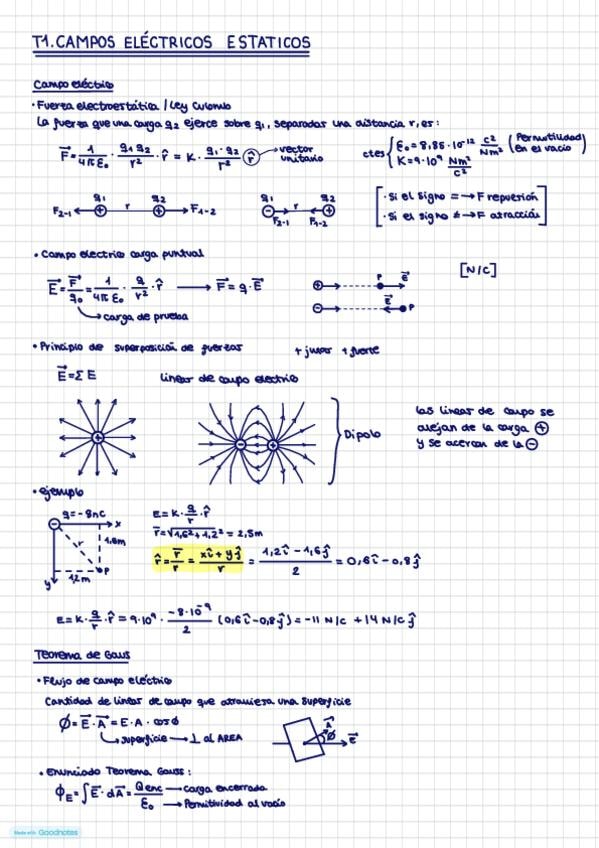 T1. CAMPOS ELÉCTRICOS ESTATICOS
Campo eléctrico
• Fuerza electroestática / Ley Culomb
La fuerza que una carga q2 ejerce sobre q1, separadas una distancia r, es:
F⃗ = 1/4πε₀ · q1 q2/r² · r̂ = K · q1 · q2/r² r̂ → vector unitario
ctes { ε₀ = 8,85 · 10⁻¹² C²/Nm² (Permitilidad en el vacío)
K = 9 · 10⁹ Nm²/C²
q1 q2 q1 q2
F2-1 r F1-2 r F2-1 F1-2
· Si el signo = → F repulsión
· Si el signo ≠ → F atracción
• Campo electrico carga puntual
E⃗ = F⃗/q₀ = 1/4πε₀ · q/r² · r̂ → F⃗ = q · E⃗
carga de prueba
P E⃗
E⃗ P
[N/C]
• Principio de superposición de fuerzas
+ juntas + fuerte
E⃗ = Σ E
lineas de campo electrico
Dipolo
las lineas de campo se
alejan de la carga ⊕
y se acercan de la ⊖
• ejemplo
q = -8nC
x
1,6m
r
P
1,2m
y
E = K · q/r · r̂
r⃗ = √1,6² + 1,2² = 2,5m
r̂ = r⃗/r = xî + yĵ/r = 1,2î - 1,6ĵ/2 = 0,6î - 0,8ĵ
E = K · q/r · r̂ = 9 · 10⁹ · -8 · 10⁻⁹/2 (0,6î - 0,8ĵ) = -11 N/C + 14 N/C ĵ
Teorema de Gauss
• Flujo de campo eléctrico
Cantidad de lineas de campo que atraviesa una superficie
Ø = E⃗ · A⃗ = E · A · cosø
superficie → ⊥ al AREA
A⃗ Ø E⃗
• Enunciado Teorema Gauss:
ϕE = ∫E⃗ · dA⃗ = Qenc/ε₀ → carga encerrada
→ Permitividad al vacío
Made with Goodnotes